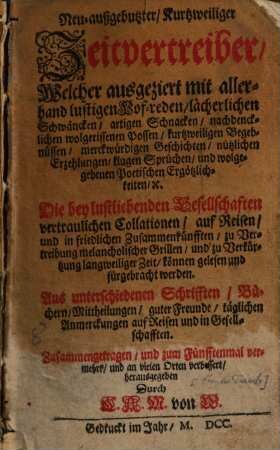 Neu-außgebutzter/ Kurtzweiliger
Zeitvertreiber/
Welcher ausgeziert mit aller-
hand lustigen Hof-reden/ lächerlichen
Schwäncken/ artigen Schnacken/ nachdenck-
lichen wolgerissenen Possen/ kurtzweiligen Begeb-
nüssen/ merckwürdigen Geschichten/ nützlichen
Erzehlungen/ klugen Sprüchen/ und wolge-
gebenen Poetischen Ergötzlich-
keiten/ ꝛc.
Die bey lustliebenden Gesellschafften
vertraulichen Collationen/ auf Reisen/
und in friedlichen Zusammenkünfften/ zu Ver-
treibung melancholischer Grillen/ und zu Verkür-
tzung langweiliger Zeit/ können gelesen und
fürgebracht werden.
Aus unterschiedenen Schrifften/ Bü-
chern/ Mittheilungen/ guter Freunde/ täglichen
Anmerckungen auf Reisen und in Gesell-
schafften.
Zusammengetragen/ und zum Fünfftenmal ver-
mehrt/ und an vielen Orten verbessert/
herausgegeben
Durch
C. A. M. von W.
Gedruckt im Jahr/ M. DCC.